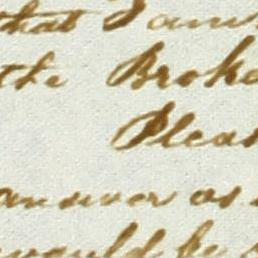 that I am
the Broke
Pleas
answer as
would be